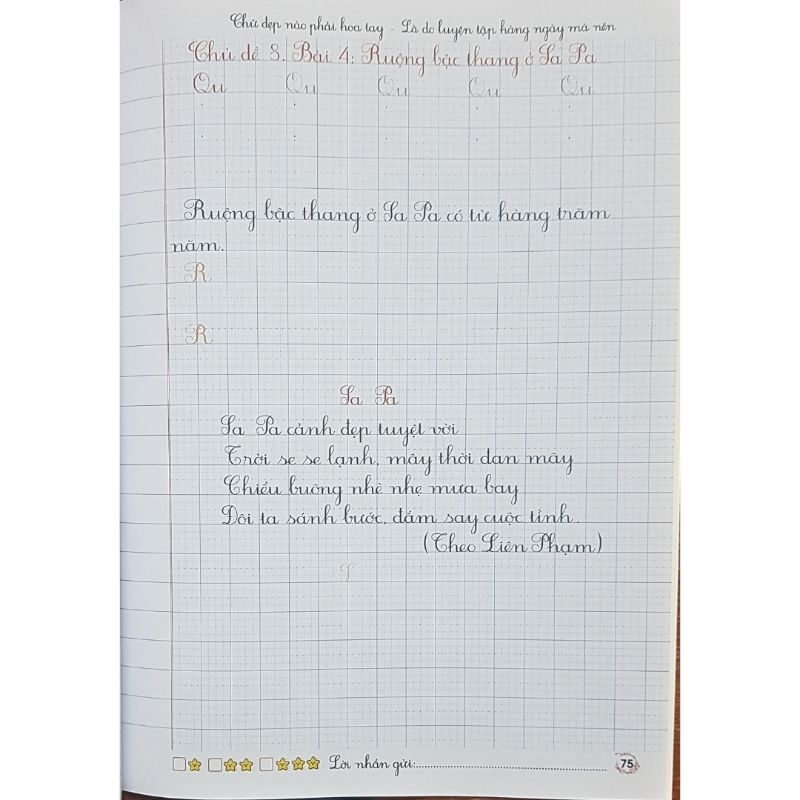 Chữ đẹp nào phải hoa tay - Là do luyện tập hàng ngày mà nên
Chủ đề 8. Bài 4: Ruộng bậc thang ở Sa Pa
Qu Qu Qu Qu Qu
Ruộng bậc thang ở Sa Pa có từ hàng trăm
năm.
R
R
Sa Pa
Sa Pa cảnh đẹp tuyệt vời
Trời se se lạnh, mây thời đan mây
Chiều buông nhè nhẹ mưa bay
Đôi ta sánh bước, đắm say cuộc tình.
(Theo Liên Phạm)
S
Lời nhắn gửi:
75